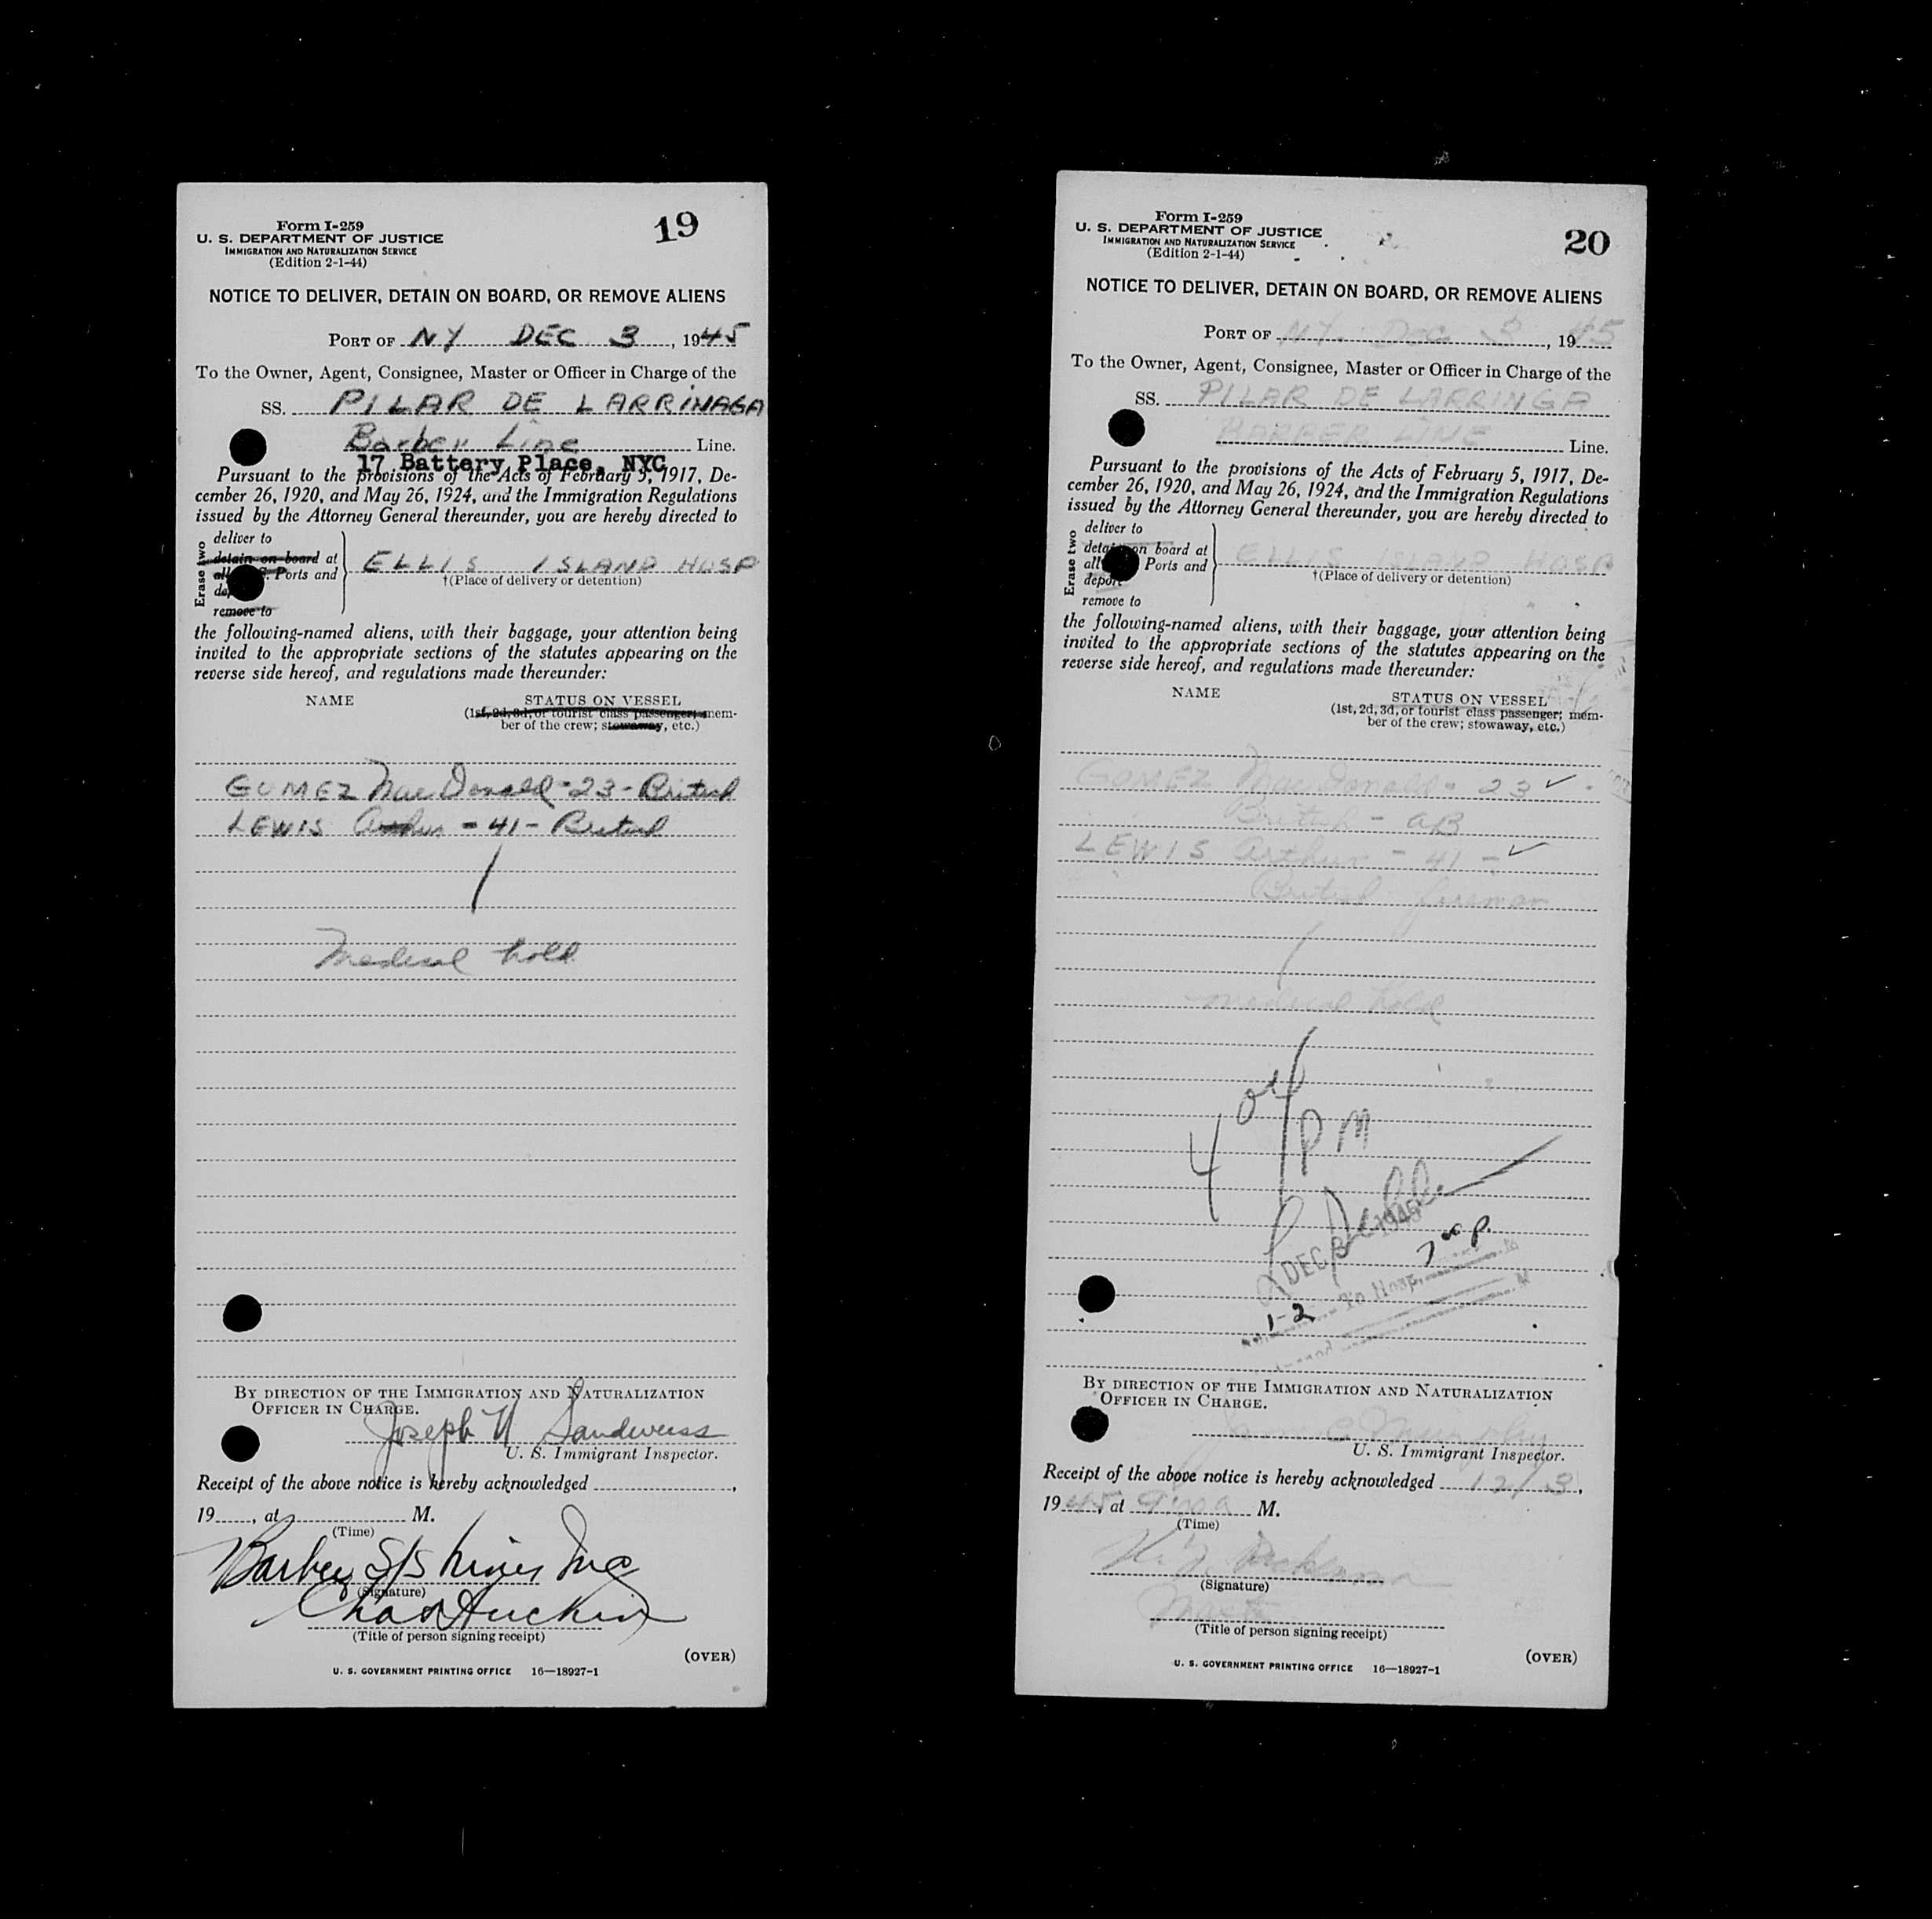 Form I-259
U. S. DEPARTMENT OF JUSTICE
IMMIGRATION AND NATURALIZATION SERVICE
(Edition 2-1-44)
19
NOTICE TO DELIVER, DETAIN ON BOARD, OR REMOVE ALIENS
PORT OF NY DEC 3, 1945
To the Owner, Agent, Consignee, Master or Officer in Charge of the
SS. PILAR DE LARRINAGA
Barber Line Line.
17 Battery Place, NYC
Pursuant to the provisions of the Acts of February 5, 1917, De-
cember 26, 1920, and May 26, 1924, and the Immigration Regulations
issued by the Attorney General thereunder, you are hereby directed to
Erase two
deliver to
detain on board at
all Ports and
remove to
ELLIS ISLAND HOSP
†(Place of delivery or detention)
the following-named aliens, with their baggage, your attention being
invited to the appropriate sections of the statutes appearing on the
reverse side hereof, and regulations made thereunder:
NAME STATUS ON VESSEL
(1st, 2d, 3d, or tourist class passenger; mem-
ber of the crew; stowaway, etc.)
GOMEZ MacDonald - 23 - British
LEWIS Arthur - 41 - British
Medical hold
BY DIRECTION OF THE IMMIGRATION AND NATURALIZATION
OFFICER IN CHARGE.
Joseph Sandweiss
U. S. Immigrant Inspector.
Receipt of the above notice is hereby acknowledged ,
19 , at M.
(Time)
Barber S/S Lines Inc
(Signature)
Chas
(Title of person signing receipt)
(OVER)
U. S. GOVERNMENT PRINTING OFFICE 16—18927-1
Form I-259
U. S. DEPARTMENT OF JUSTICE
IMMIGRATION AND NATURALIZATION SERVICE
(Edition 2-1-44)
20
NOTICE TO DELIVER, DETAIN ON BOARD, OR REMOVE ALIENS
PORT OF NY. DEC 3, 1945
To the Owner, Agent, Consignee, Master or Officer in Charge of the
SS. PILAR DE LARRINGA
BARBER LINE Line.
Pursuant to the provisions of the Acts of February 5, 1917, De-
cember 26, 1920, and May 26, 1924, and the Immigration Regulations
issued by the Attorney General thereunder, you are hereby directed to
Erase two
deliver to
detain on board at
all Ports and
deport
remove to
ELLIS ISLAND HOSP
†(Place of delivery or detention)
the following-named aliens, with their baggage, your attention being
invited to the appropriate sections of the statutes appearing on the
reverse side hereof, and regulations made thereunder:
NAME STATUS ON VESSEL
(1st, 2d, 3d, or tourist class passenger; mem-
ber of the crew; stowaway, etc.)
GOMEZ MacDonald - 23 ✓
British - AB
LEWIS Arthur - 41 - ✓
British fireman
Medical hold
4 04 PM
DEC 3 1945
7 00 p.
To Hosp.
1-2
BY DIRECTION OF THE IMMIGRATION AND NATURALIZATION
OFFICER IN CHARGE.
Murphy
U. S. Immigrant Inspector.
Receipt of the above notice is hereby acknowledged 12/3,
1945, at M.
(Time)
(Signature)
Master
(Title of person signing receipt)
(OVER)
U. S. GOVERNMENT PRINTING OFFICE 16—18927-1